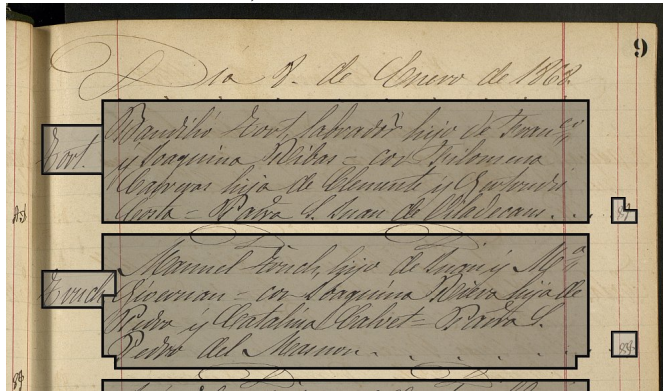 9
Dia 8. de Enero de 1862
Font.
Baudilio Font, labrador hijo de Fran.co
y Joaquina Ribas = con Filomena
Cabreras hija de Clemente y Gertrudis
Costa = Parra. S. Juan de Viladecans.
Manuel Fonch, hijo de Juan y M.a
= con Joaquina Rivera hija de
Pedro y Catalina Calvet = Parra S.
Pedro del